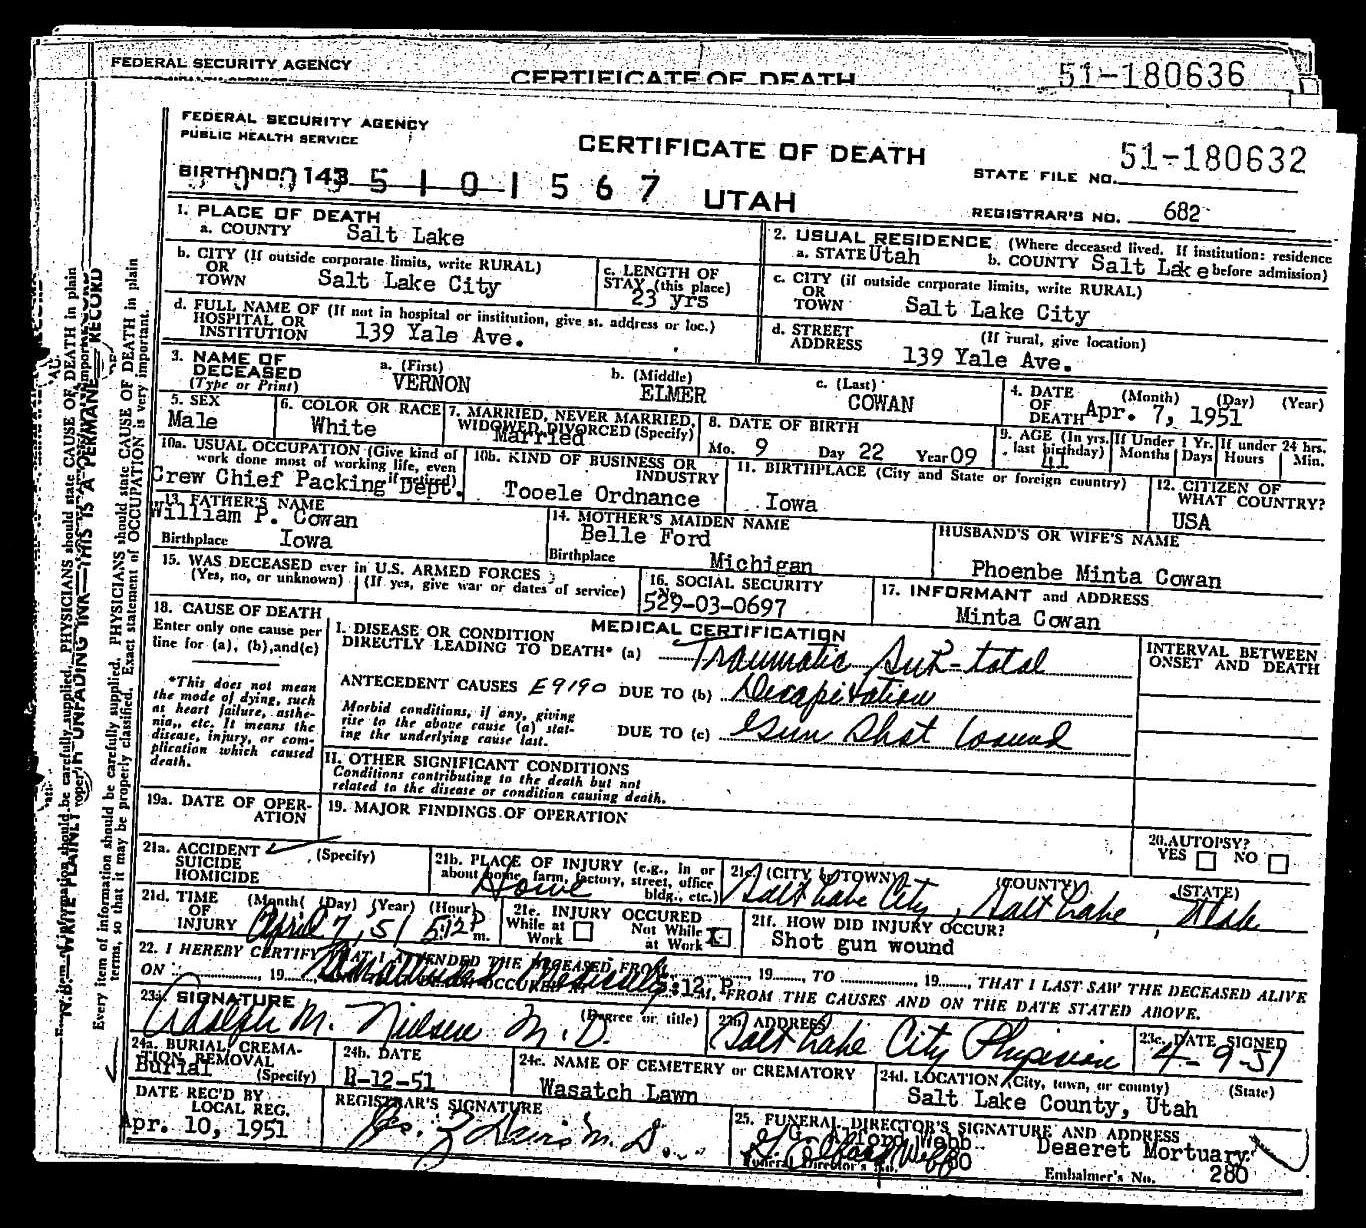 FEDERAL SECURITY AGENCY
CERTIFICATE OF DEATH
51-180636
FEDERAL SECURITY AGENCY
PUBLIC HEALTH SERVICE
CERTIFICATE OF DEATH
51-180632
STATE FILE NO.
BIRTH NO. 143
5 1 0 1 5 6 7
UTAH
REGISTRAR'S NO. 682
1. PLACE OF DEATH
a. COUNTY Salt Lake
2. USUAL RESIDENCE (Where deceased lived. If institution: residence
a. STATE Utah b. COUNTY Salt Lake before admission)
b. CITY (If outside corporate limits, write RURAL)
OR
TOWN Salt Lake City
c. LENGTH OF
STAY (this place)
23 yrs
c. CITY (if outside corporate limits, write RURAL)
OR
TOWN Salt Lake City
d. FULL NAME OF (If not in hospital or institution, give st. address or loc.)
HOSPITAL OR
INSTITUTION 139 Yale Ave.
d. STREET (If rural, give location)
ADDRESS 139 Yale Ave.
3. NAME OF
DECEASED
(Type or Print)
a. (First)
VERNON
b. (Middle)
ELMER
c. (Last)
COWAN
4. DATE (Month) (Day) (Year)
OF
DEATH Apr. 7, 1951
5. SEX
Male
6. COLOR OR RACE
White
7. MARRIED, NEVER MARRIED,
WIDOWED DIVORCED (Specify)
Married
8. DATE OF BIRTH
Mo. 9 Day 22 Year 09
9. AGE (In yrs. last birthday)
41
If Under 1 Yr.
Months Days
If under 24 hrs.
Hours Min.
10a. USUAL OCCUPATION (Give kind of
work done most of working life, even
if retired)
Crew Chief Packing Dept.
10b. KIND OF BUSINESS OR
INDUSTRY
Tooele Ordnance
11. BIRTHPLACE (City and State or foreign country)
Iowa
12. CITIZEN OF
WHAT COUNTRY?
USA
13. FATHER'S NAME
William P. Cowan
Birthplace Iowa
14. MOTHER'S MAIDEN NAME
Belle Ford
Birthplace Michigan
HUSBAND'S OR WIFE'S NAME
Phoenbe Minta Cowan
15. WAS DECEASED ever in U.S. ARMED FORCES
(Yes, no, or unknown) (If yes, give war or dates of service)
16. SOCIAL SECURITY
No.
529-03-0697
17. INFORMANT and ADDRESS
Minta Cowan
18. CAUSE OF DEATH
Enter only one cause per
line for (a), (b), and (c)
*This does not mean
the mode of dying, such
as heart failure, asthe-
nia, etc. It means the
disease, injury, or com-
plication which caused
death.
MEDICAL CERTIFICATION
I. DISEASE OR CONDITION
DIRECTLY LEADING TO DEATH* (a) Traumatic Sub-total
ANTECEDENT CAUSES E9190 DUE TO (b) Decapitation
Morbid conditions, if any, giving
rise to the above cause (a) stat-
ing the underlying cause last.
DUE TO (c) Gun Shot Wound
INTERVAL BETWEEN
ONSET AND DEATH
II. OTHER SIGNIFICANT CONDITIONS
Conditions contributing to the death but not
related to the disease or condition causing death.
19a. DATE OF OPER-
ATION
19. MAJOR FINDINGS OF OPERATION
20. AUTOPSY?
YES NO
21a. ACCIDENT ✓
SUICIDE
HOMICIDE
(Specify)
21b. PLACE OF INJURY (e.g., in or
about home, farm, factory, street, office
bldg., etc.)
Home
21c. (CITY or TOWN) (COUNTY) (STATE)
Salt Lake City, Salt Lake, Utah
21d. TIME (Month) (Day) (Year) (Hour)
OF
INJURY April 7, 51 5:12 P m.
21e. INJURY OCCURED
While at Work Not While at Work X
21f. HOW DID INJURY OCCUR?
Shot gun wound
22. I HEREBY CERTIFY THAT I ATTENDED THE DECEASED FROM , 19 TO , 19 , THAT I LAST SAW THE DECEASED ALIVE
ON , 19 5:12 P. M, FROM THE CAUSES AND ON THE DATE STATED ABOVE.
23a. SIGNATURE (Degree or title)
Adolph M. Nielsen M.D.
23b. ADDRESS
Salt Lake City Physician
23c. DATE SIGNED
4-9-51
24a. BURIAL, CREMA-
TION REMOVAL
Burial (Specify)
24b. DATE
-12-51
24c. NAME OF CEMETERY or CREMATORY
Wasatch Lawn
24d. LOCATION (City, town, or county) (State)
Salt Lake County, Utah
DATE REC'D BY
LOCAL REG.
Apr. 10, 1951
REGISTRAR'S SIGNATURE
25. FUNERAL DIRECTOR'S SIGNATURE AND ADDRESS
Webb Deseret Mortuary
Funeral Director's No. Embalmer's No. 280
N.B.—WRITE PLAINLY UNFADING INK—THIS IS A PERMANENT RECORD
Every item of information should be carefully supplied. PHYSICIANS should state CAUSE OF DEATH in plain
terms, so that it may be properly classified. Exact statement of OCCUPATION is very important.